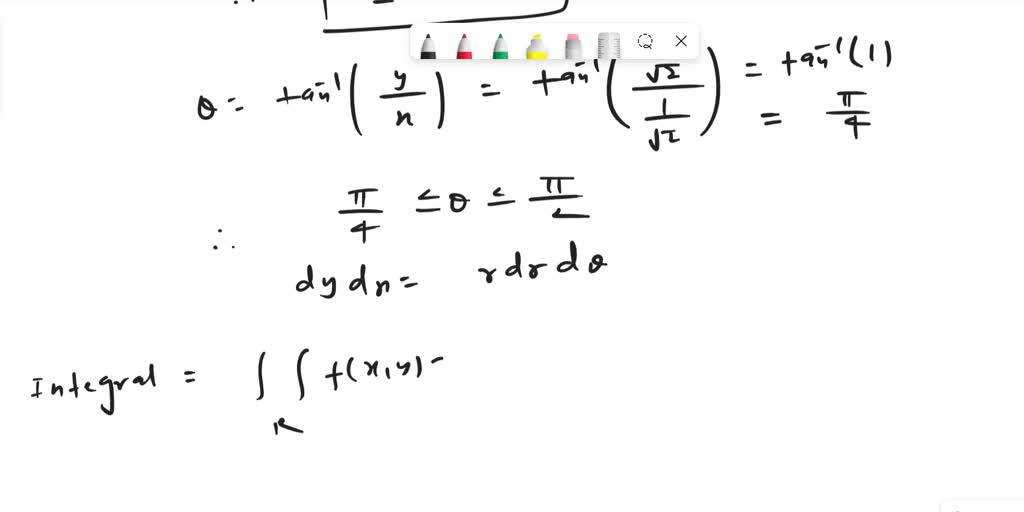 θ = tan⁻¹(y/n) = tan⁻¹(√2/(1/√2)) = tan⁻¹(1)
= π/4
∴ π/4 ≤ θ ≤ π/2
dy dn = r dr dθ
Integral = ∫∫ f(x,y) -
R